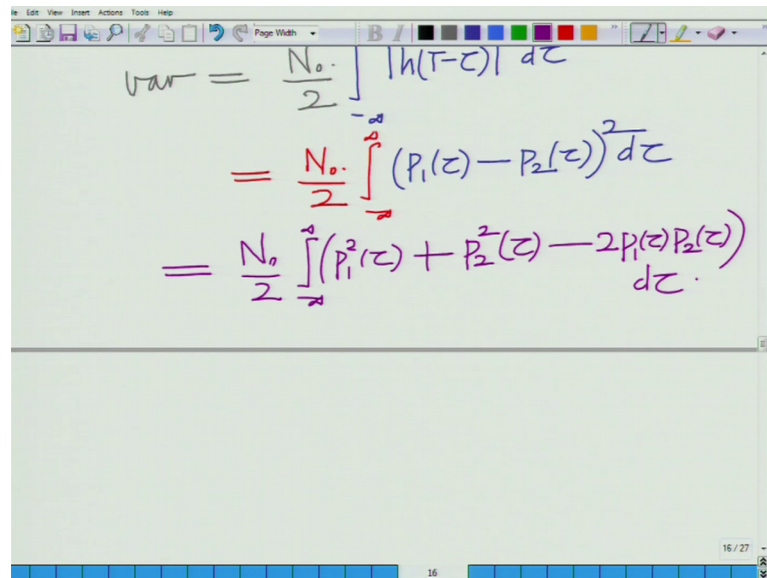 File Edit View Insert Actions Tools Help
Page Width
B I
var = N₀/2 ∫_{-∞} |h(T-τ)| dτ
= N₀/2 ∫_{-∞}^{∞} (P₁(τ) - P₂(τ))² dτ
= N₀/2 ∫_{-∞}^{∞} (P₁²(τ) + P₂²(τ) - 2P₁(τ)P₂(τ))
dτ.
16 / 27
16